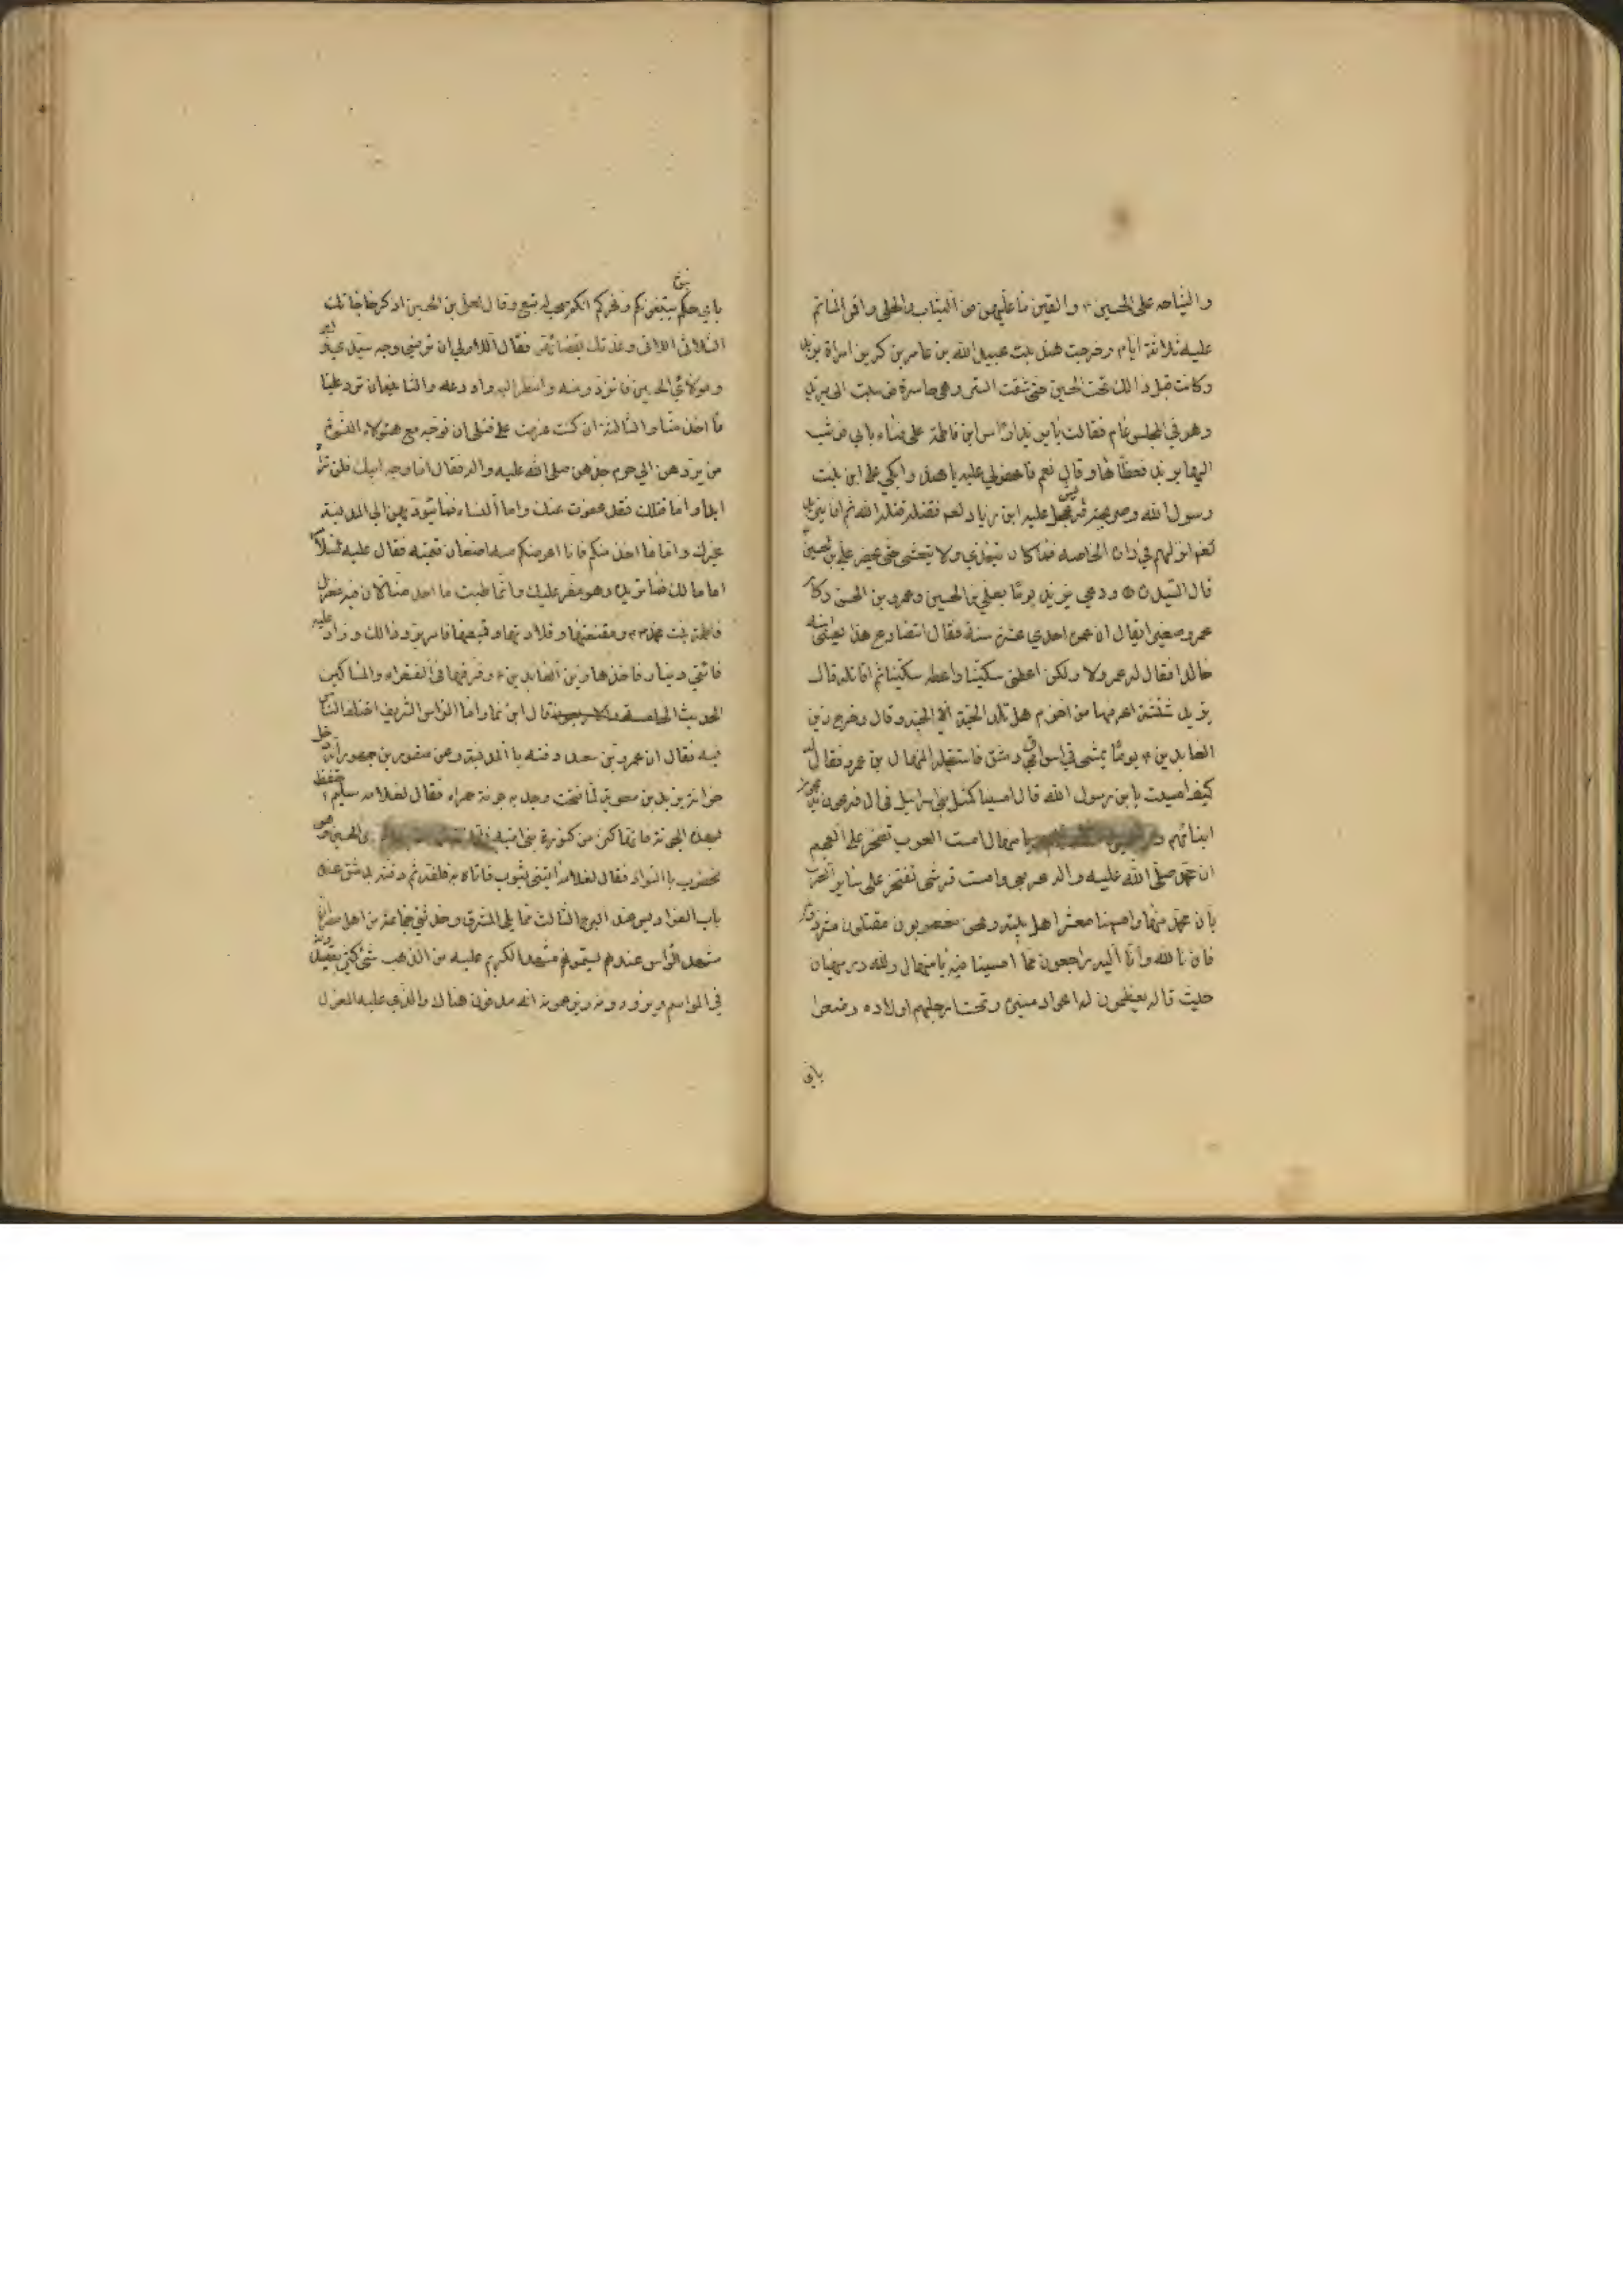 والنياحه على الحسين ء والقين ما عليهن من الثياب والحلى واقمن الماتم
عليه ثلاثة ايام وخرجت هند بنت عبيد الله بن عامر بن كريز امراة يزيد
وكانت قبل ذالك تحت الحسين حتى شقت الستر وهي حاسرة فوثبت الى يزيد
وهو في مجلس عام فقالت يا يزيد اراس ابن فاطمة على فناء بابي فوثب
اليها يزيد فغطاها وقال نعم فاعولي عليه يا هند وابكي على ابن بنت
رسول الله وصريخة قريش عجل عليه ابن زياد لعنه فقتله قتله الله ثم ان يزيد
لعنه انزلهم في داره الخاصه فما كان يتغذي ولا يتعشى حتى يحضر علي بن الحسين
قال السيد ودعى يزيد يوما بعلي بن الحسين وعمرو بن الحسن وكان
عمرو صغيرا يقال ان عمره احدي عشرة سنة فقال اتصارع هذا يعني ابنه
خالدا فقال له عمرو لا ولكن اعطني سكينا واعطه سكينا ثم اقاتله قال
يزيد شنشنة اعرفها من اخزم هل تلد الحية الا الحية وقال وخرج زين
العابدين ء يوما يمشى في اسواق دمشق فاستقبله المنهال بن عمرو فقال له
كيف امسيت يا ابن رسول الله قال امسينا كمثل بني اسرائيل في ال فرعون يذبحون
ابنائهم يا منهال امست العرب تفتخر على العجم
ان محمد صلى الله عليه واله عربي وامست قريش تفتخر على ساير العرب
بان محمد منها وامسينا معشر اهل بيته ونحن مغصوبون مقتلون مشردون
فان لله وانا اليه راجعون مما امسينا فيه يا منهال ولله در مهيار
حيث قال يعظمون له اعواد منبره وتحت ارجلهم اولاده وضعوا
باي
باي حكم بنوه يتبعونكم وفخركم انكم صحب له تبع وقال لعلي بن الحسين اذكر حاجاتك
الثلاث اللاتى وعدتك بقضائهن فقال الاولي ان تريني وجه سيدي وابي
ومولاي الحسين فاتزود منه وانظر اليه واودعه والثانية ان ترد علينا
ما اخذ منا والثالثة ان كنت عزمت على قتلي ان توجه مع هؤلاء النسوة
من يردهن الي حرم جدهن صلى الله عليه واله فقال اما وجه ابيك فلن تراه
ابدا واما قتلك فقد عفوت عنك واما النساء فما يؤديهن الي المدينة
غيرك واما ما اخذ منكم فانا اعوضكم عنه اضعاف قيمته فقال عليه السلام
اما مالك فما نريده وهو موفر عليك وانما طلبت ما اخذ منا لان فيه مغزل
فاطمة بنت محمد ومقنعتها وقلادتها وقميصها فامر برد ذالك وزاد عليه
مائتي دينار فاخذها زين العابدين ء وفرقها في الفقراء والمساكين
قال ابن نما واما الراس الشريف اختلف الناس
فيه فقال ان عمرو بن سعد دفنه باالمدينة وعن منصور بن جمهور انه دخل
خزانة يزيد بن معوية لما فتحت وجد به جونة حمراء فقال لغلامه سليم احتفظ
بهذه الجونة فانها كنز من كنوز بني امية الحسين وهو
مخضوب باالسواد فقال لغلامه ايتني بثوب فاتاه به فلفه ثم دفنه بدمشق عند
باب الفراديس عند البرج الثالث مما يلي المشرق وحدثني جماعة من اهل مصر ان
مشهد الراس عندهم يسمونه مشهد الكريم عليه من الذهب شئ كثير يقصدونه
في المواسم ويزورونه ويزعمون انه مدفون هناك والذي عليه المعول